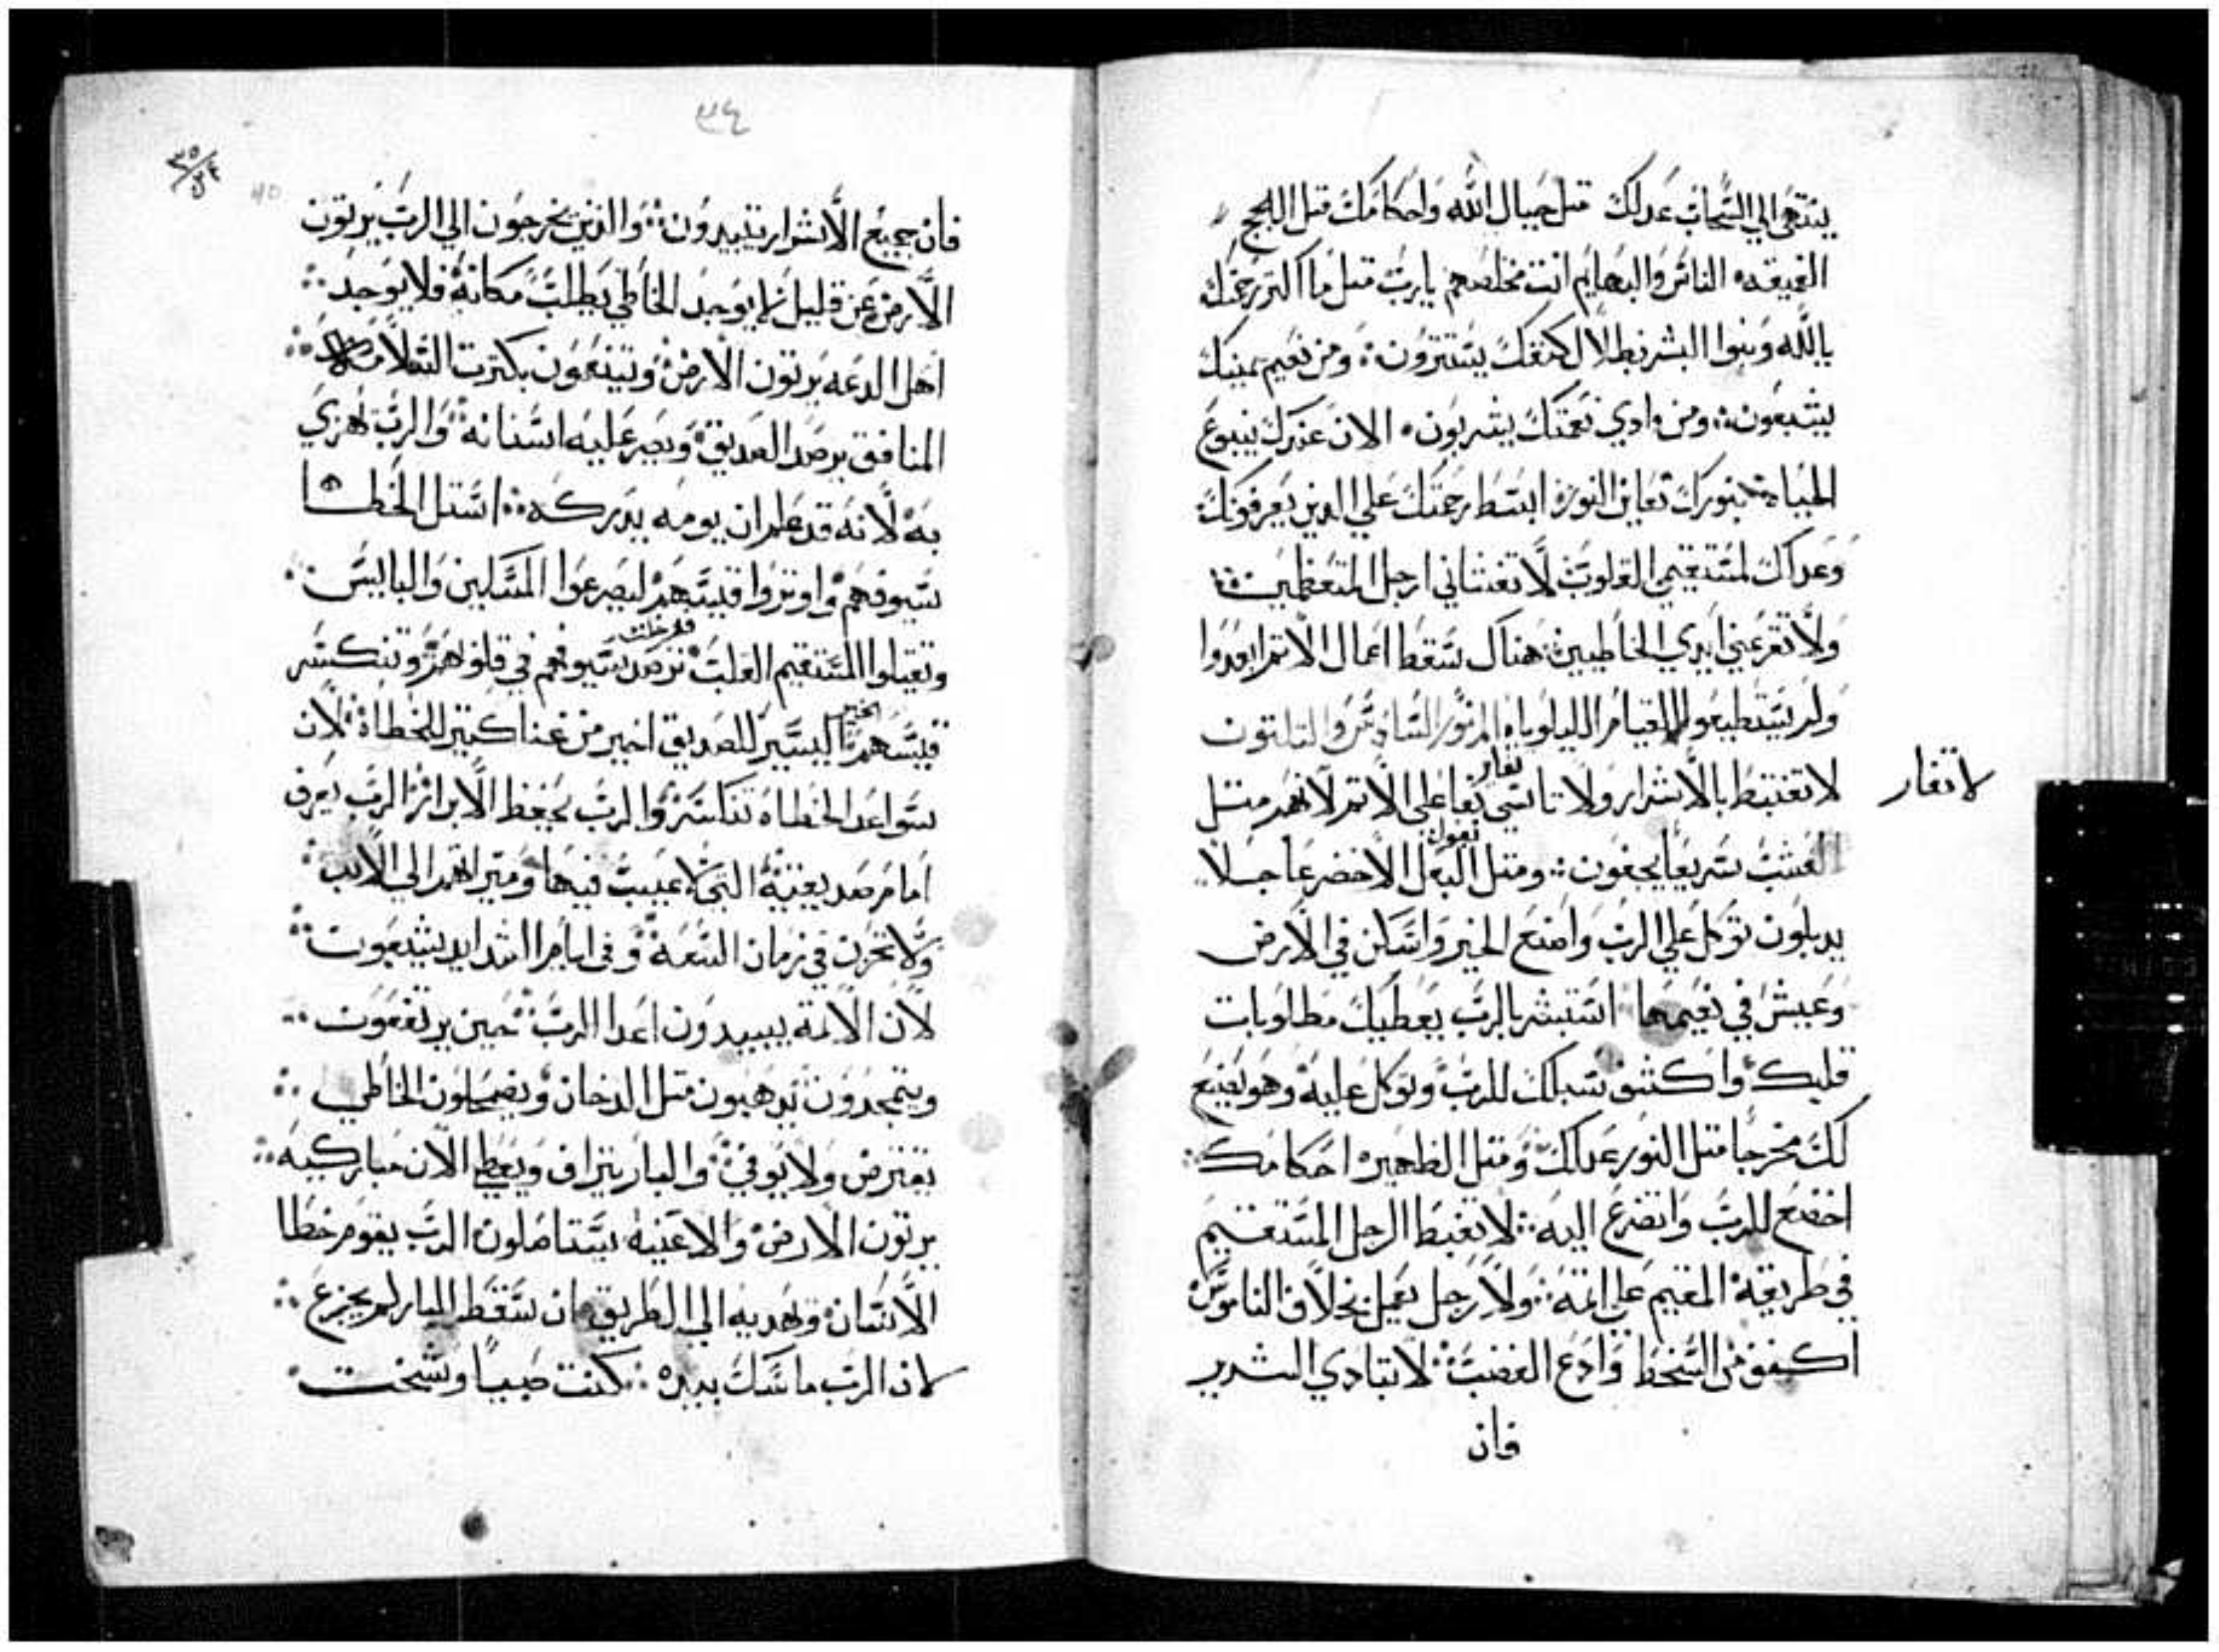 ينتهي الي السحاب عدلك مثل جبال الله واحكامك مثل اللجج
العميقه الناس والبهايم انت مخلصهم يارب مثل ما اكثرت رحمتك
يالله وبنوا البشر بظلال كنفك يستترون ومن نعيم بيتك
يشبعون ومن وادي نعمتك يشربون الان عندك ينبوع
الحياة بنورك نعاين النور ابسط رحمتك علي الدين يعرفونك
وعدلك لمستقيمي القلوب لا تغشاني ارجل المتعظمين
ولا تقرعني ايدي الخاطيين هناك سقط اعمال الاتم ابعدوا
ولم يستطيعوا القيام الليلويا المزمور السادس والتلتون
لا تغتبط بالاشرار ولا تاسي بفاعلي الاتم لانهم متل
تغاير
لا تغار
العشب سريعا يجفون ومتل البقل الاخضر عاجلا
بقول
يدبلون توكل علي الرب واصنع الخير واسكن في الارض
وعيش في نعيمها استبشر بالرب يعطيك مطلوبات
قلبك واكشف سبلك للرب وتوكل عليه وهو يصنع
لك مخرجا متل النور عدلك ومتل الظهيره احكامك
اخضع للرب واتضرع اليه لا تغبط الرجل المستقيم
في طريقه المقيم علي اتمه ولا رجل يعمل بخلاف الناموس
اكفف من السخط وادع الغضب لا تبادي الشرير
فان
٣٤
٣٥
٣٤
40
فان جميع الاشرار يبيدون والذين يخرجون الي الرب يرتون
الارض عن قليل لا يوجد الخاطي يطلب مكانه فلا يوجد
اهل الدعه يرتون الارض ويتنعمون بكترت السلامه
المنافق يرصد الصديق ويصر عليه اسنانه والرب يهزي
به لانه قد علم ان يومه يدركه استل الخطا
سيوفهم واوتروا قسيهم ليصرعوا المسكين والبايس
ويقتلوا المستقيم القلب ترصد سيوفهم في قلوبهم وتنكسر
فدخلت
قسيهم اليسير للصديق اخير من غنا كتير للخطاة لان
الخير
سواعد الخطاه تنكسر والرب يحفظ الابرار الرب يعرف
امام صديقيه التي لا عيب فيها وميراتهم الي الابد
ولا تخزن في زمان السعه وفي ايام الشدايد يشبعون
لان الاتمه يبيدون اعدا الرب حين يرتفعون
ويتمجدون يدهبون متل الدخان ويضمحلون الخاطي
يقترض ولا يوفي والبار يتراف ويعطي الان مباركيه
يرتون الارض والاعنيه يستاصلون الرب يقوم خطا
الانسان ويهديه الي الطريق ان سقط البار لم يجزع
لان الرب ماسك بيده كنت صبيا وشخت